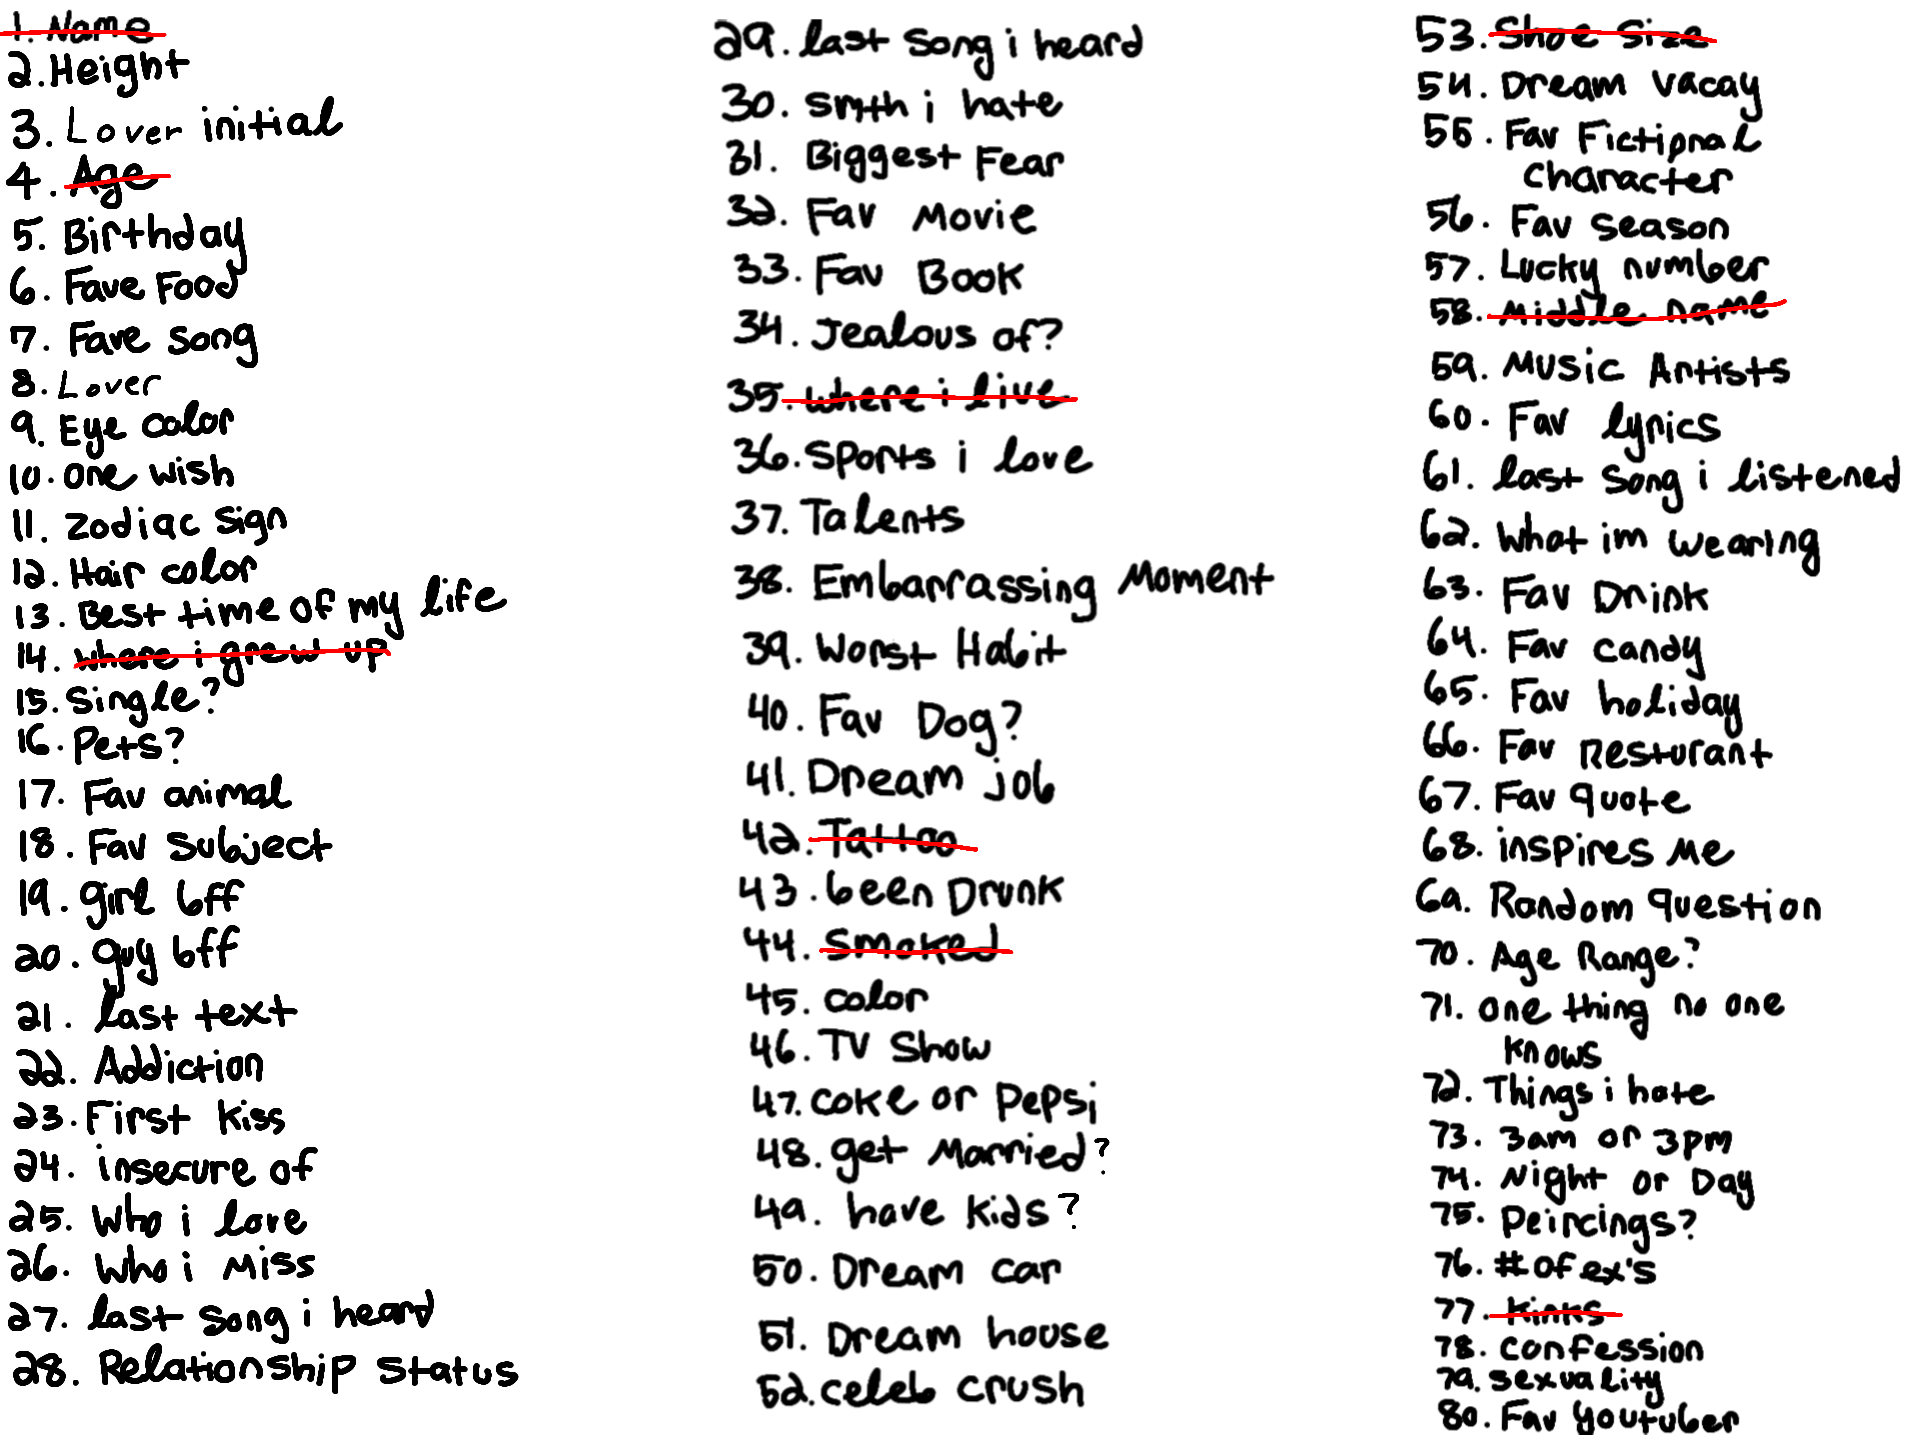 1. Name
2. Height
3. Lover initial
4. Age
5. Birthday
6. Fave Food
7. Fave song
8. Lover
9. Eye color
10. one wish
11. zodiac sign
12. Hair color
13. Best time of my life
14. where i grew up
15. single?
16. Pets?
17. Fav animal
18. Fav subject
19. girl bff
20. guy bff
21. last text
22. Addiction
23. First kiss
24. insecure of
25. Who i love
26. Who i Miss
27. last song i heard
28. Relationship status
29. last song i heard
30. smth i hate
31. Biggest Fear
32. Fav Movie
33. Fav Book
34. Jealous of?
35. where i live
36. Sports i love
37. Talents
38. Embarrassing Moment
39. Worst Habit
40. Fav Dog?
41. Dream job
42. Tattoo
43. been Drunk
44. Smoked
45. color
46. TV Show
47. coke or pepsi
48. get Married?
49. have kids?
50. Dream car
51. Dream house
52. celeb crush
53. Shoe Size
54. Dream vacay
55. Fav Fictional
character
56. Fav season
57. Lucky number
58. Middle name
59. Music Artists
60. Fav lyrics
61. last song i listened
62. What im wearing
63. Fav Drink
64. Fav candy
65. Fav holiday
66. Fav Resturant
67. Fav quote
68. inspires Me
69. Random question
70. Age Range?
71. one thing no one
knows
72. Things i hate
73. 3am or 3pm
74. Night or Day
75. Peircings?
76. # of ex's
77. kinks
78. confession
79. sexuality
80. Fav youtuber